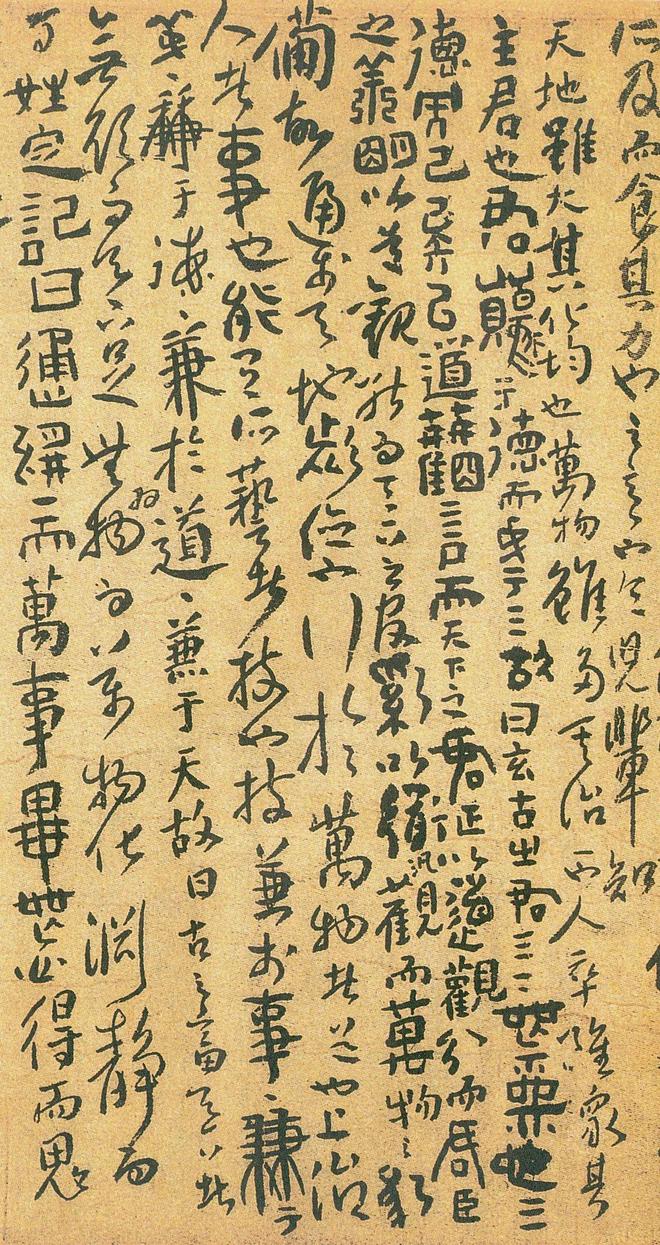 所及而食其力也
天地雖大其化均也萬物雖多其治一也人卒雖眾其
主君也君原于德而成于天故曰玄古之君天下無為也天
德而已矣以道觀言而天下之君正以道觀分而君臣
之義明以道觀能而天下之官治以道汎觀而萬物之應
備故通於天地者德也行於萬物者道也上治
人者事也能有所藝者技也技兼於事々兼于
義々兼于德々兼於道々兼于天故曰古之畜天下者
無欲而天下足無為而萬物化淵靜而
百姓定記曰通於一而萬事畢無心得而鬼